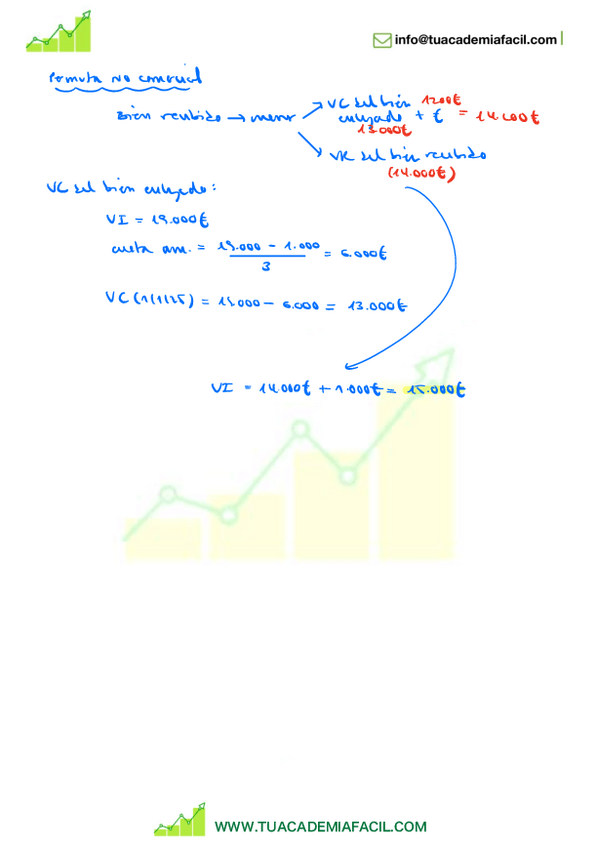 info@tuacademiafacil.com
Permuta no comercial
Bien recibido → menor
VC del bien 1200€
entregado + € = 14.200€
13.000€
VR del bien recibido
(14.000€)
VC del bien entregado:
VI = 19.000€
cuota am. = 19.000 - 1.000 = 6.000€
3
VC (1/1/25) = 19.000 - 6.000 = 13.000€
VI = 14.000€ + 1.000€ = 15.000€
WWW.TUACADEMIAFACIL.COM